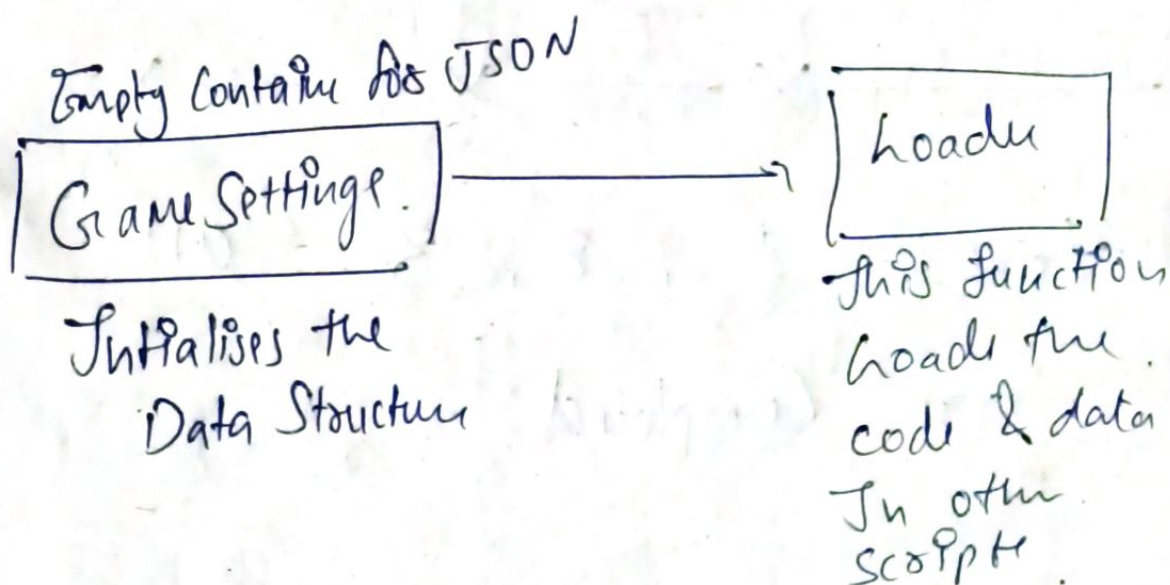 Empty Container for JSON
Game Settings.
Intialises the
Data Structure
Loader
This function
Loads the
code & data
In other
scripts.